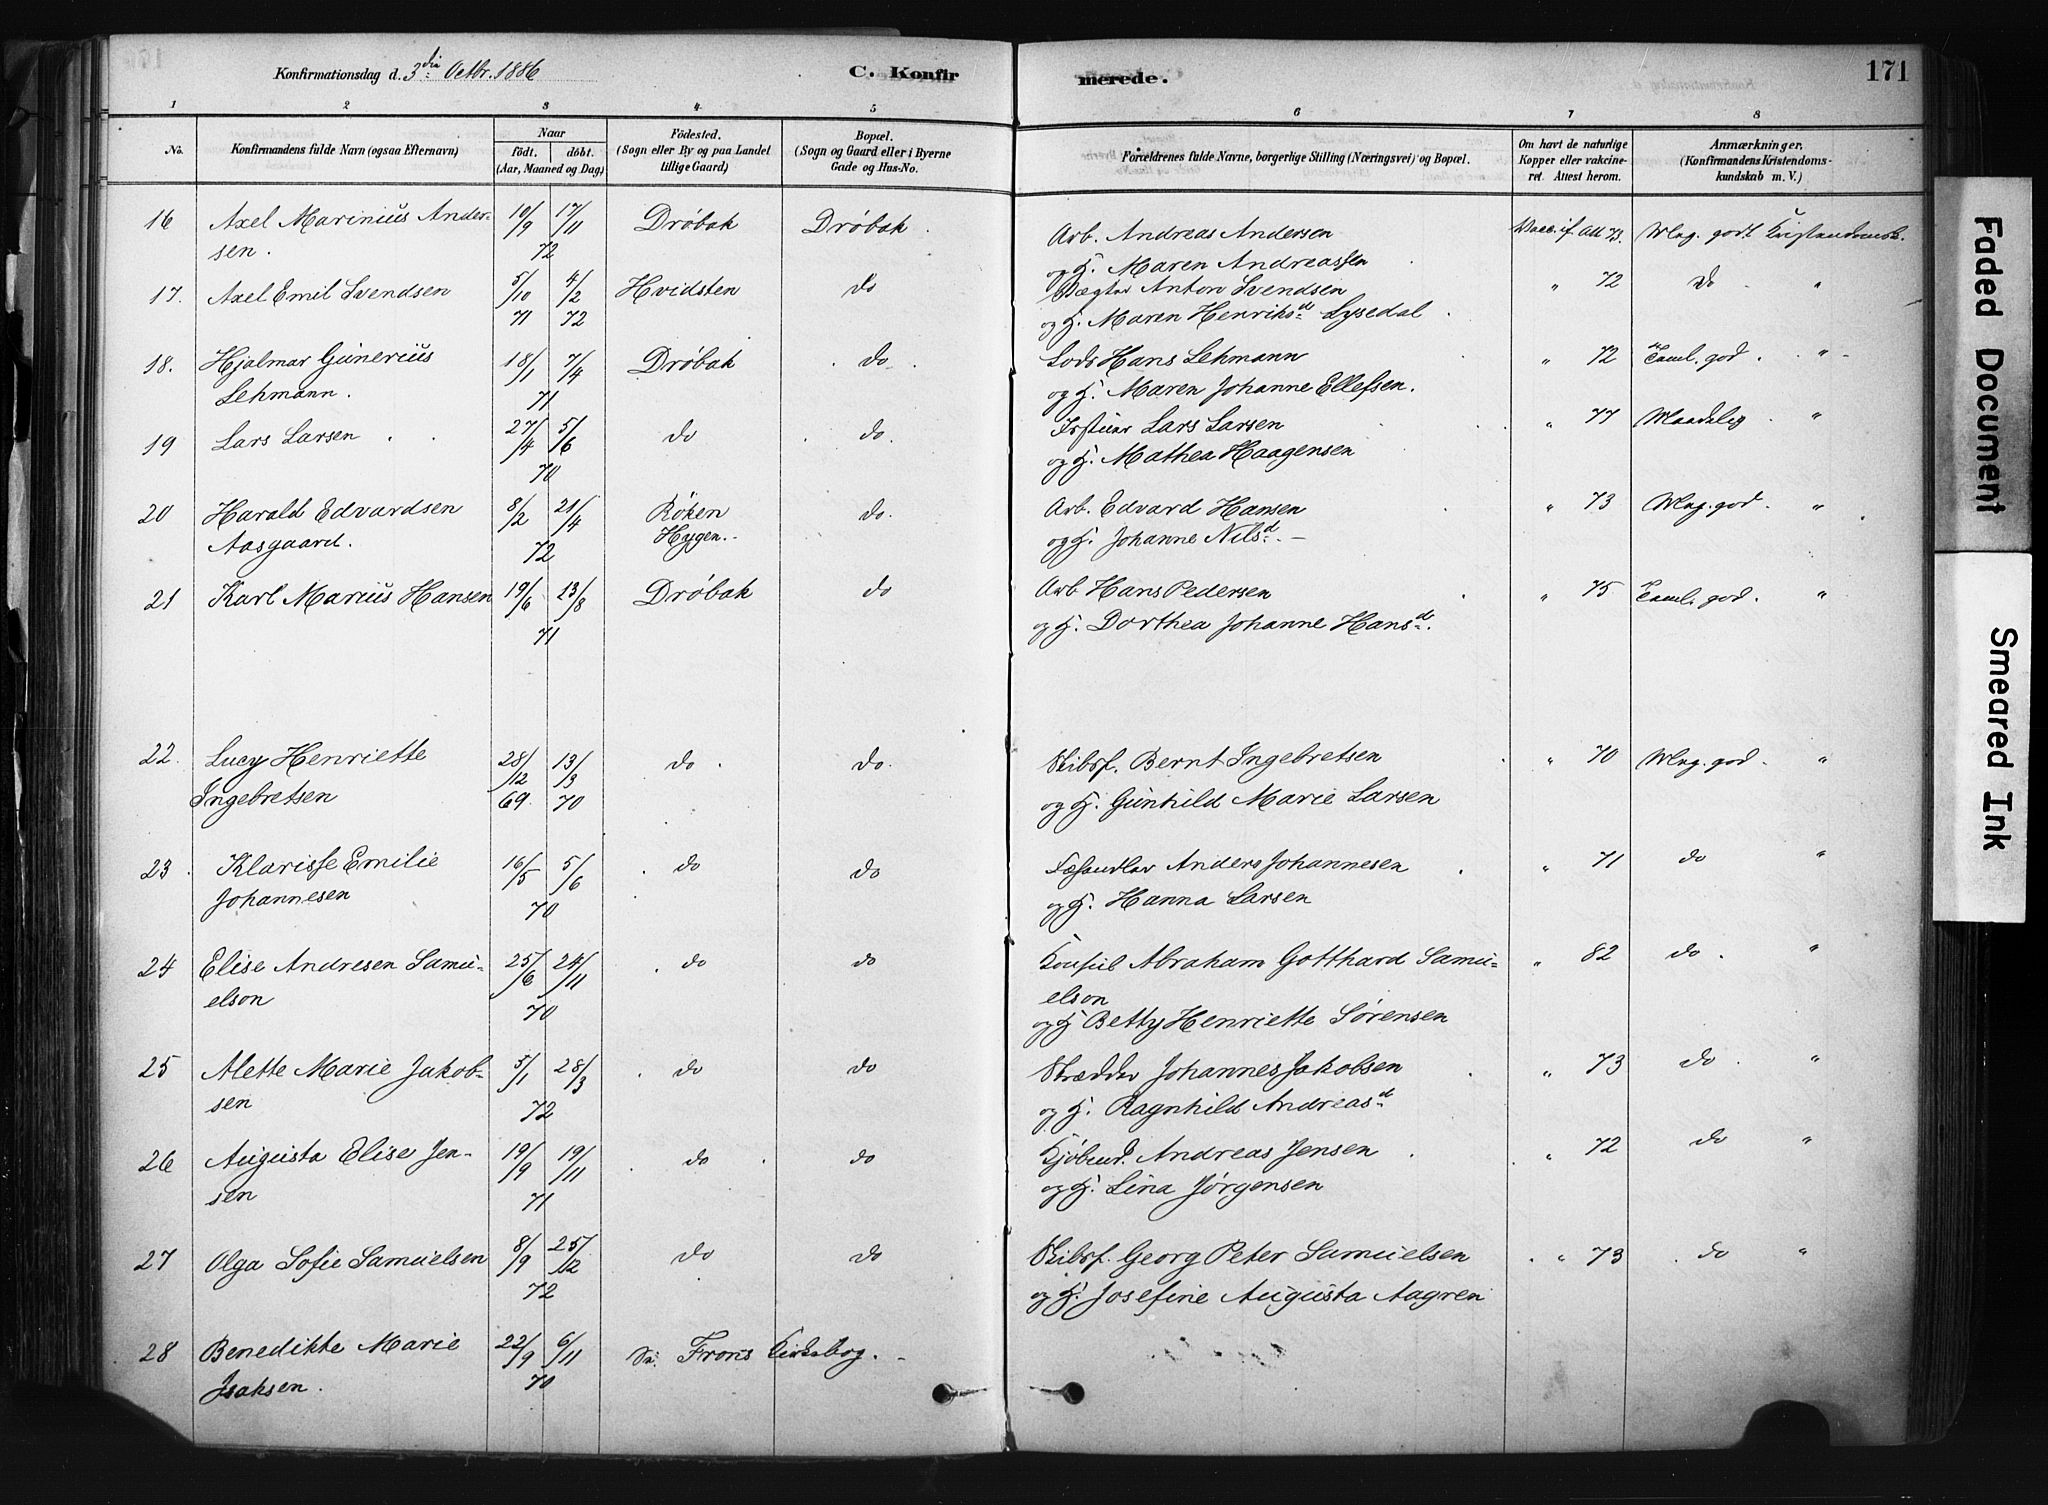 Konfirmationsdag d. 3die Octbr. 1886
C. Konfirmerede.
171
1 2 3 4 5 6 7 8
No.
Konfirmandens fulde Navn (ogsaa Efternavn)
Naar
født. døbt.
(Aar, Maaned og Dag)
Fødested.
(Sogn eller By og paa Landet
tillige Gaard)
Bopæl.
(Sogn og Gaard eller i Byerne
Gade og Hus-No.
Forældrenes fulde Navne, borgerlige Stilling (Næringsvei) og Bopæl.
Om havt de naturlige
Kopper eller vakcine-
ret. Attest herom.
Anmærkninger.
(Konfirmandens Kristendoms-
kundskab m. V.)
16 Axel Marinius Ander- 10/9 17/11 Drøbak Drøbak. Arb. Andreas Andersen Vacc. if. Att 73. Mg. godt Kristendomsk.
sen. 72 og H. Maren Andreassen
17. Axel Emil Svendsen 5/10 4/2 Hvidsten do Vægter Anton Svendsen " 72 do "
71 72 og H. Maren Henriksd. Lysedal
18. Hjalmar Gunerius 18/1 7/4 Drøbak do. Lods Hans Lehmann " 72 Taml. god. "
Lehmann. 71 og H. Maren Johanne Ellefsen.
19 Lars Larsen 27/4 5/6 do do. Lars Larsen " 77 Maadelig "
70 og H. Mathea Haagensen
20 Harald Edvardsen 8/2 21/4 Røken do. Arb. Edvard Hansen " 73 Mg. god. "
Aasgaard. 72 Hygen. og H. Johanne Nilsd.
21 Karl Marius Hansen 19/6 13/8 Drøbak do Arb Hans Pedersen " 75 Taml. god. "
71 og H. Dorthea Johanne Hansd.
22. Lucy Henriette 28/12 13/3 do. do. Skibsf. Bernt Ingebretsen " 70 Mg. god. "
Ingebretsen 69. 70 og H. Gunhild Marie Larsen
23. Klarisse Emilie 16/5 5/6 do do Anders Johannesen " 71 do "
Johannesen 70 og H. Hanna Larsen
24 Elise Andresen Samu- 25/6 24/11 do do Konsul Abraham Gotthard Samu- " 82 do. "
elson 70 elson
og H Betty Henriette Sørensen
25 Alette Marie Jakob- 5/1 28/3 do do Skrædder Johannes Jakobsen " 73 do. "
sen 72 og H. Ragnhild Andreasd
26 Augusta Elise Jen- 19/9 19/11 do do Kjøbmd. Andreas Jensen " 72 do "
sen 71 og H. Lina Jørgensen
27 Olga Sofie Samuelsen 8/9 25/12 do do Skibsf. Georg Peter Samuelsen " 73 do "
72 og H. Josefine Augusta Aagren
28 Benedikte Marie 22/9 6/11 Se. Frons Kirkebog.
Isaksen. 70
Faded Document
Smeared Ink